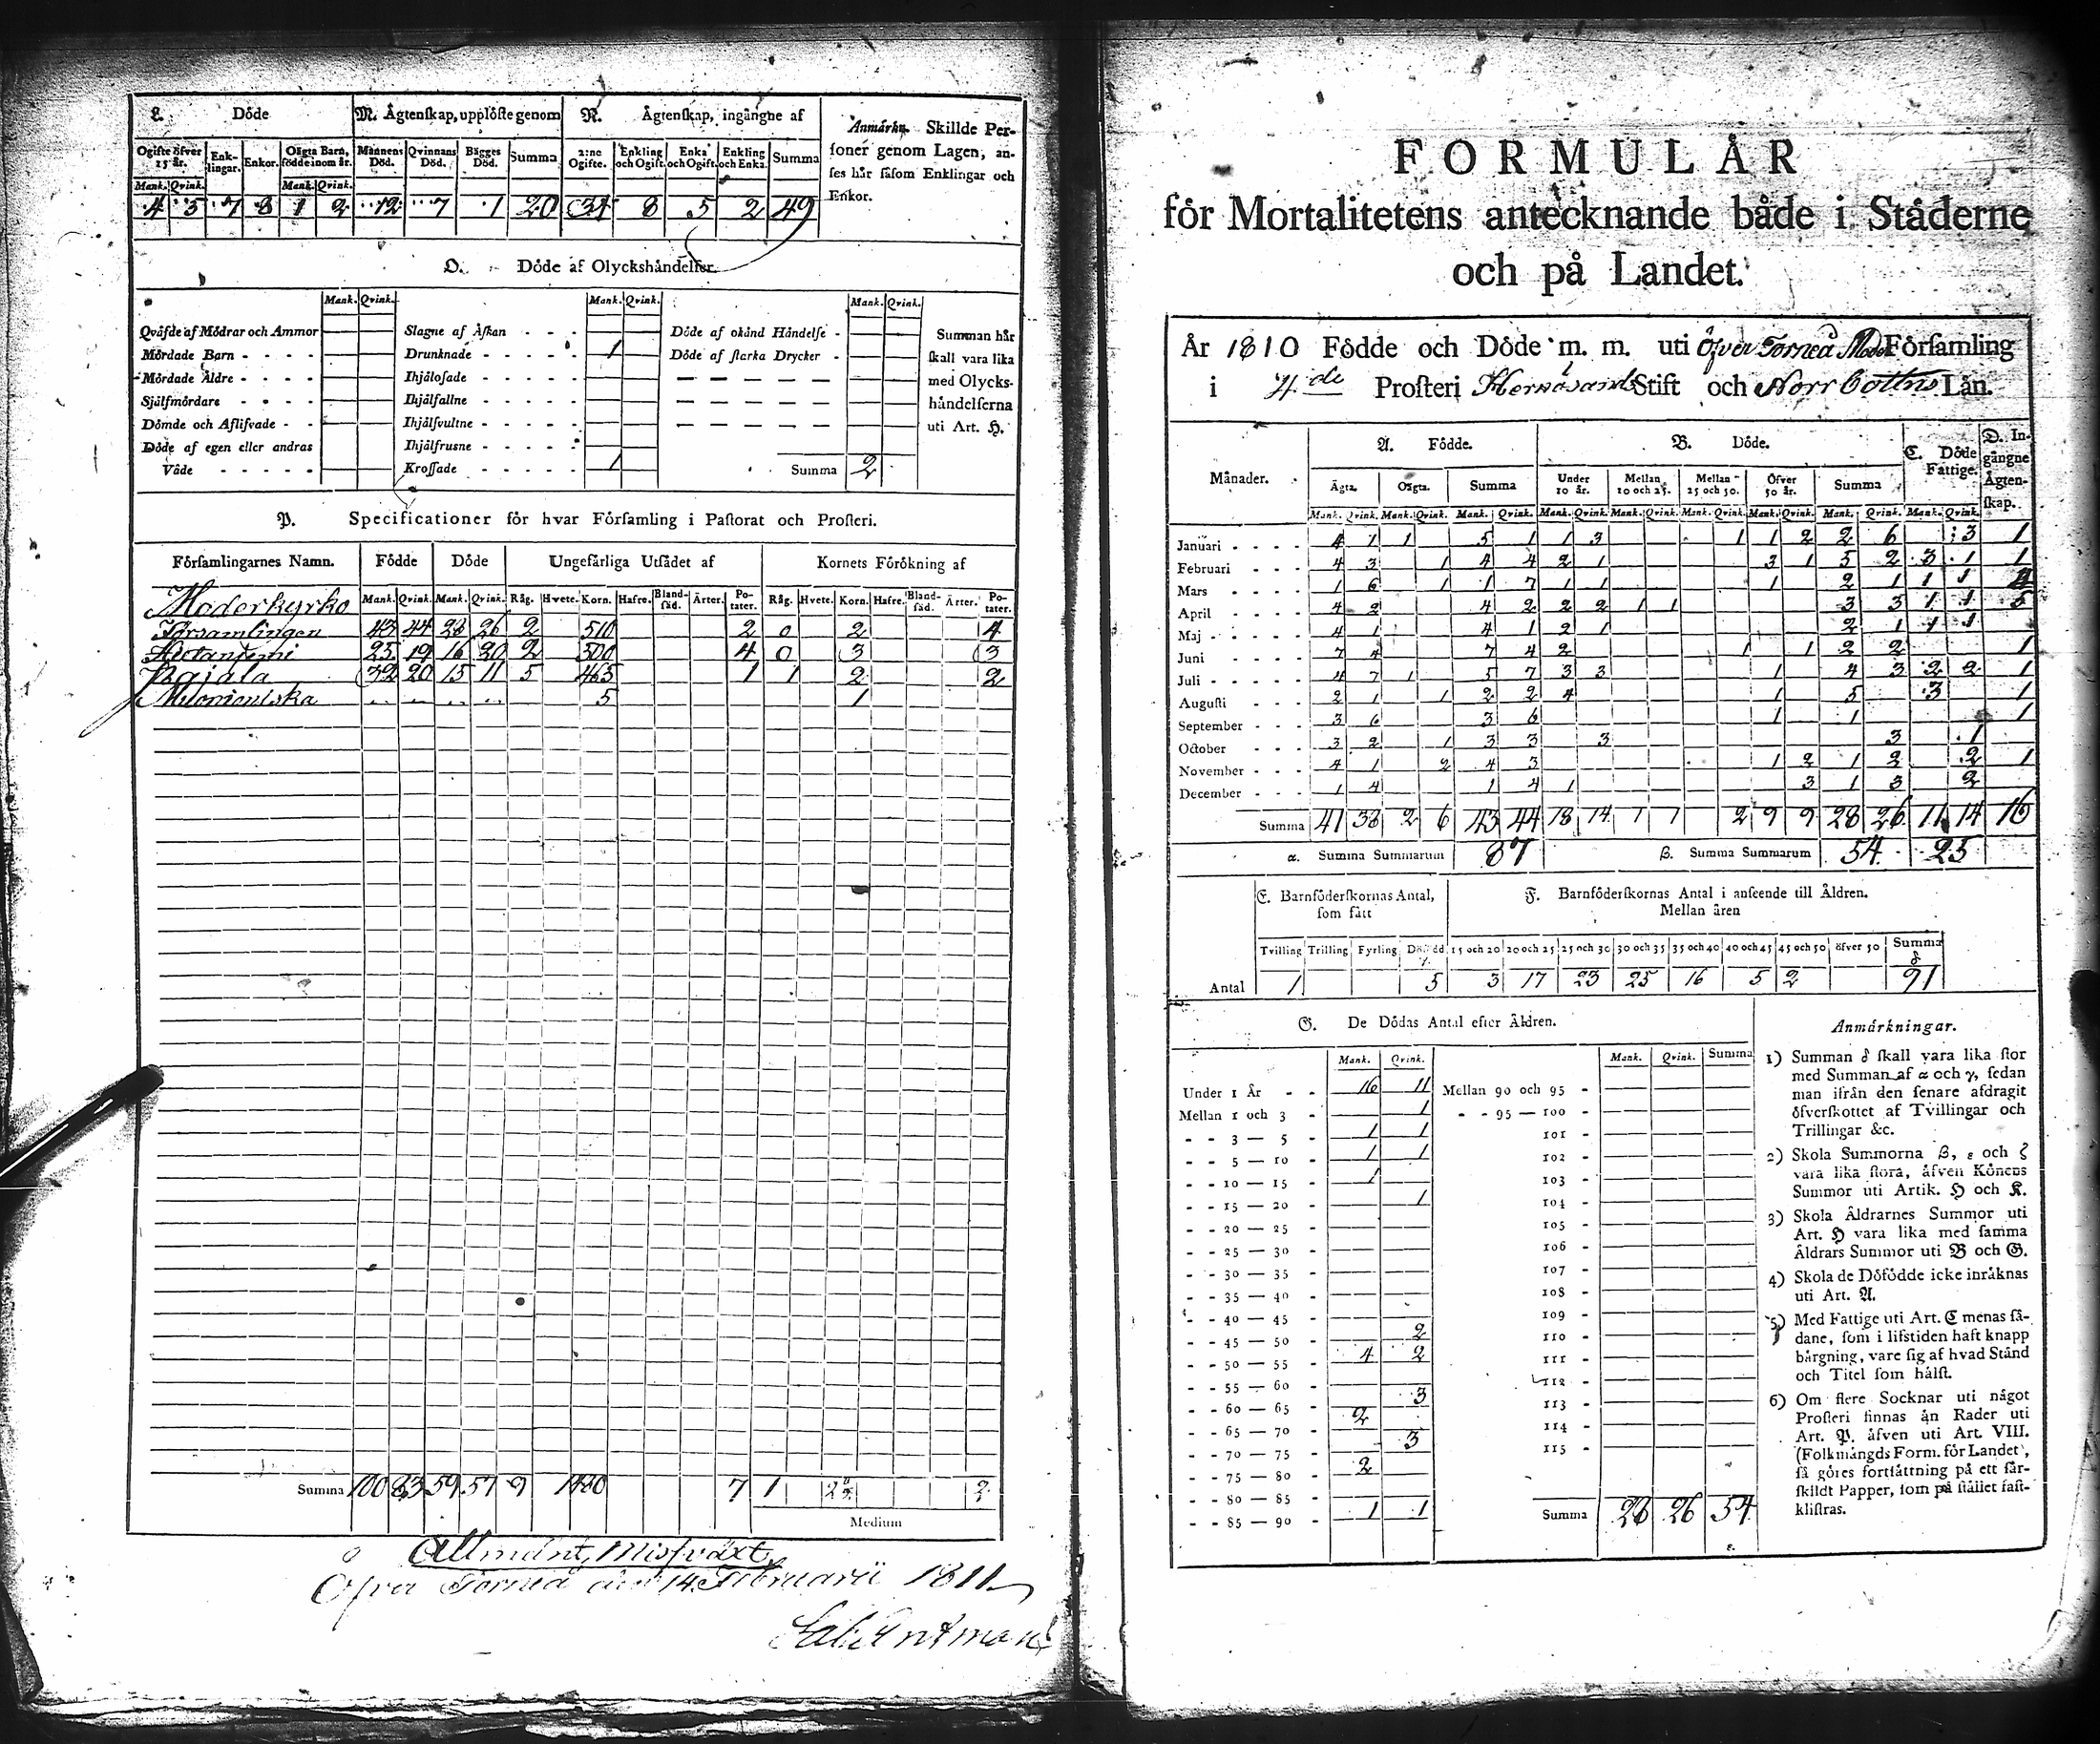 L. Döde M. Ägtenſkap, upplöſte genom N. Ägtenſkap, ingångne af
Anmärkn. Skillde Per-
ſoner genom Lagen, an-
ſes här ſåſom Enklingar och
Enkor.
Ogifte öfver 25 år. Enk-lingar. Enkor. Oägta Barn, födde inom år. Mannens Död. Qvinnans Död. Bägges Död. Summa 2:ne Ogifte. Enkling och Ogift. Enka och Ogift. Enkling och Enka. Summa
Mank. Qvink. Mank. Qvink.
4 5 7 8 1 2 12 7 1 20 34 8 5 2 49
O. Döde af Olyckshändelſer.
Mank. Qvink. Mank. Qvink. Mank. Qvink.
Qväfde af Mödrar och Ammor Slagne af Åſkan Döde af okänd Händelſe Summan här
Mördade Barn Drunknade 1 Döde af ſtarka Drycker ſkall vara lika
Mördade Äldre Ihjäloſade med Olycks-
Sjelfmördare Ihjälfallne händelſerna
Dömde och Aflifvade Ihjälſvultne uti Art. H.
Döde af egen eller andras Ihjälfrusne
Våde Kroſſade 1 Summa 2
P. Specificationer för hvar Förſamling i Paſtorat och Proſteri.
Förſamlingarnes Namn. Födde Döde Ungefärliga Utſädet af Kornets Förökning af
Mank. Qvink. Mank. Qvink. Råg. Hvete. Korn. Hafre. Bland-ſäd. Ärter. Po-tater. Råg. Hvete. Korn. Hafre. Bland-ſäd. Ärter. Po-tater.
Moderkyrko
Församlingen 43 44 28 26 2 510 2 0 2 4
Hietaniemi 25 19 16 20 2 500 4 0 3 3
Pajala 32 20 15 11 5 465 1 1 2 2
5 1
Summa 100 83 59 57 9 1480 7 1
Medium
Allmänt Misſväxt
Öfver Torneå den 14 Februarii 1811
FORMULÄR
för Mortalitetens antecknande både i Städerne
och på Landet.
År 1810 Födde och Döde m. m. uti Öfver Torneå Moder Förſamling
i 4de Proſteri Hernösands Stift och Norrbottns Län.
Månader. A. Födde. B. Döde. C. Döde Fattige. D. In-gångne Ägten-ſkap.
Ägta. Oägta. Summa Under 10 år. Mellan 10 och 25. Mellan 25 och 50. Öfver 50 år. Summa
Mank. Qvink. Mank. Qvink. Mank. Qvink. Mank. Qvink. Mank. Qvink. Mank. Qvink. Mank. Qvink. Mank. Qvink. Mank. Qvink.
Januari 4 1 1 5 1 1 3 1 1 2 2 6 3 1
Februari 4 3 1 4 4 2 1 3 1 5 2 3 1 1
Mars 1 6 1 1 7 1 1 1 2 1 1 1 4
April 4 2 4 2 2 2 1 1 3 3 1 1 5
Maj 4 1 4 1 2 1 2 1 1 1
Juni 7 4 7 4 2 1 1 2 2 1
Juli 4 7 1 5 7 3 3 1 4 3 2 2 1
Auguſti 2 1 1 2 2 4 1 5 3 1
September 3 6 3 6 1 1 1
October 3 2 1 3 3 3 3 1
November 4 1 2 4 3 1 2 1 2 2 1
December 1 4 1 4 1 3 1 3 2
Summa 41 38 2 6 43 44 18 14 1 1 2 9 9 28 26 11 14 16
α. Summa Summarum 87 β. Summa Summarum 54 25
E. Barnföderſkornas Antal, ſom fått F. Barnföderſkornas Antal i anſeende till Åldren.
Mellan åren
Tvilling Trilling Fyrling Dödfödd γ. 15 och 20 20 och 25 25 och 30 30 och 35 35 och 40 40 och 45 45 och 50 öfver 50 Summa δ
Antal 1 5 3 17 23 25 16 5 2 91
G. De Dödas Antal efter Åldren.
Mank. Qvink. Mank. Qvink. Summa
Under 1 År 16 11 Mellan 90 och 95
Mellan 1 och 3 1 95 — 100
3 — 5 1 1 101
5 — 10 1 1 102
10 — 15 1 103
15 — 20 1 104
20 — 25 105
25 — 30 106
30 — 35 107
35 — 40 108
40 — 45 109
45 — 50 2 110
50 — 55 4 2 111
55 — 60 112
60 — 65 3 113
65 — 70 2 114
70 — 75 3 115
75 — 80 2
80 — 85
85 — 90 1 1 Summa 28 26 54
ε.
Anmärkningar.
1) Summan δ ſkall vara lika ſtor
med Summan af α och γ, ſedan
man ifrån den ſenare afdragit
öfverſkottet af Tvillingar och
Trillingar &c.
2) Skola Summorna β, ε och ζ
vara lika ſtora, äfven Könens
Summor uti Artik. H och K.
3) Skola Åldrarnes Summor uti
Art. H vara lika med ſamma
Åldrars Summor uti B och G.
4) Skola de Döfödde icke inräknas
uti Art. A.
5) Med Fattige uti Art. C menas ſå-
dane, ſom i lifstiden haft knapp
bärgning, vare ſig af hvad Stånd
och Titel ſom hälſt.
6) Om flere Socknar uti något
Proſteri finnas än Rader uti
Art. P. äfven uti Art. VIII.
(Folkmängds Form. för Landet),
få göres fortſättning på ett ſär-
ſkildt Papper, ſom på ſtället faſt-
kliſtras.